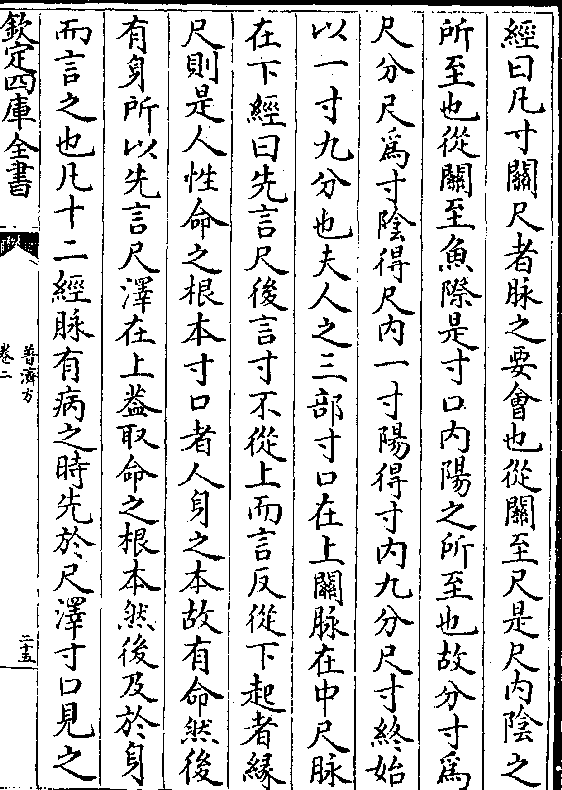 經曰凡寸關尺者脉之要會也從關至尺是尺内陰之
所至也從關至魚際是寸口内陽之所至也故分寸為
尺分尺為寸陰得尺内一寸陽得寸内九分尺寸終始
以一寸九分也夫人之三部寸口在上關脉在中尺脉
在下經曰先言尺後言寸不從上而言反從下起者緣
尺則是人性命之根本寸口者人身之本故有命然後
有身所以先言尺澤在上葢取命之根本然後及於身
而言之也凡十二經脉有病之時先於尺澤寸口見之
欽定四庫全書
普濟方
卷二
二十五